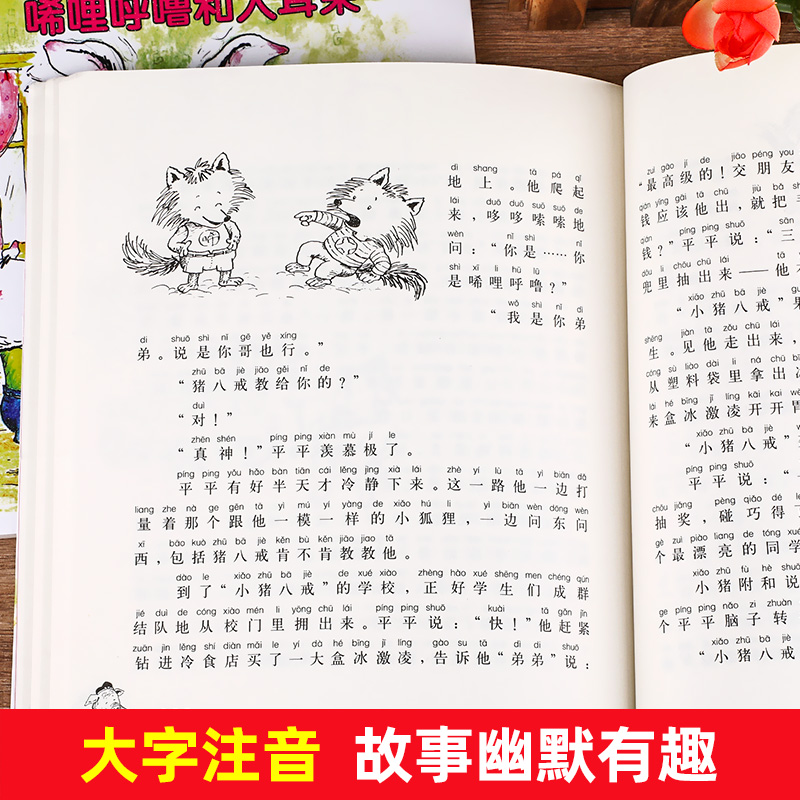 唏哩呼噜和大耳朵
dì shang tā pá qǐ
地上。他爬起
lái duō duō suō suō de
来，哆哆嗦嗦地
wèn nǐ shì nǐ
问：“你是……你
shì xī li hū lū
是唏哩呼噜？”
wǒ shì nǐ dì
“我是你弟
di shuō shì nǐ gē yě xíng
弟。说是你哥也行。”
zhū bā jiè jiāo gěi nǐ de
“猪八戒教给你的？”
duì
“对！”
zhēn shén píng píng xiàn mù jí le
“真神！”平平羡慕极了。
píng píng yǒu hǎo bàn tiān cái lěng jìng xià lái zhè yí lù tā yì biān dǎ
平平有好半天才冷静下来。这一路他一边打
liang zhe nà ge gēn tā yì mú yí yàng de xiǎo hú li yì biān wèn dōng wèn
量着那个跟他一模一样的小狐狸，一边问东问
xī bāo kuò zhū bā jiè kěn bù kěn jiāo jiao tā
西，包括猪八戒肯不肯教教他。
dào le xiǎo zhū bā jiè de xué xiào zhèng hǎo xué sheng men chéng qún
到了“小猪八戒”的学校，正好学生们成群
jié duì de cóng xiào mén li yōng chū lái píng píng shuō kuài tā gǎn jǐn
结队地从校门里拥出来。平平说：“快！”他赶紧
zuān jìn lěng shí diàn mǎi le yí dà hé bīng jī líng gào su tā dì di shuō
钻进冷食店买了一大盒冰激凌，告诉他“弟弟”说：
zuì gāo jí de jiāo péng you
“最高级的！交朋友
qián yīng gāi tā chū jiù bǎ
钱应该他出，就把
qián píng píng shuō sān
钱？”平平说：“三
dōu li chōu chū lái tā
兜里抽出来——他
xiǎo zhū bā jiè
“小猪八戒”果
shēng jiàn tā zǒu chū lái
生。见他走出来，
cóng sù liào dài li ná chū
从塑料袋里拿出冰
lái hé bīng jī líng kāi kai wèi
来盒冰激凌开开胃
xiǎo zhū bā jiè
“小猪八戒”
píng píng shuō
平平说：“
chōu jiǎng pèng qiǎo dé
抽奖，碰巧得了
gè zuì piào liang de tóng xué
个最漂亮的同学
xiǎo zhū fù hè shuō
小猪附和说
ge píng píng nǎo zi zhuàn
个平平脑子转
xiǎo zhū bā jiè
“小猪八戒
大字注音 故事幽默有趣